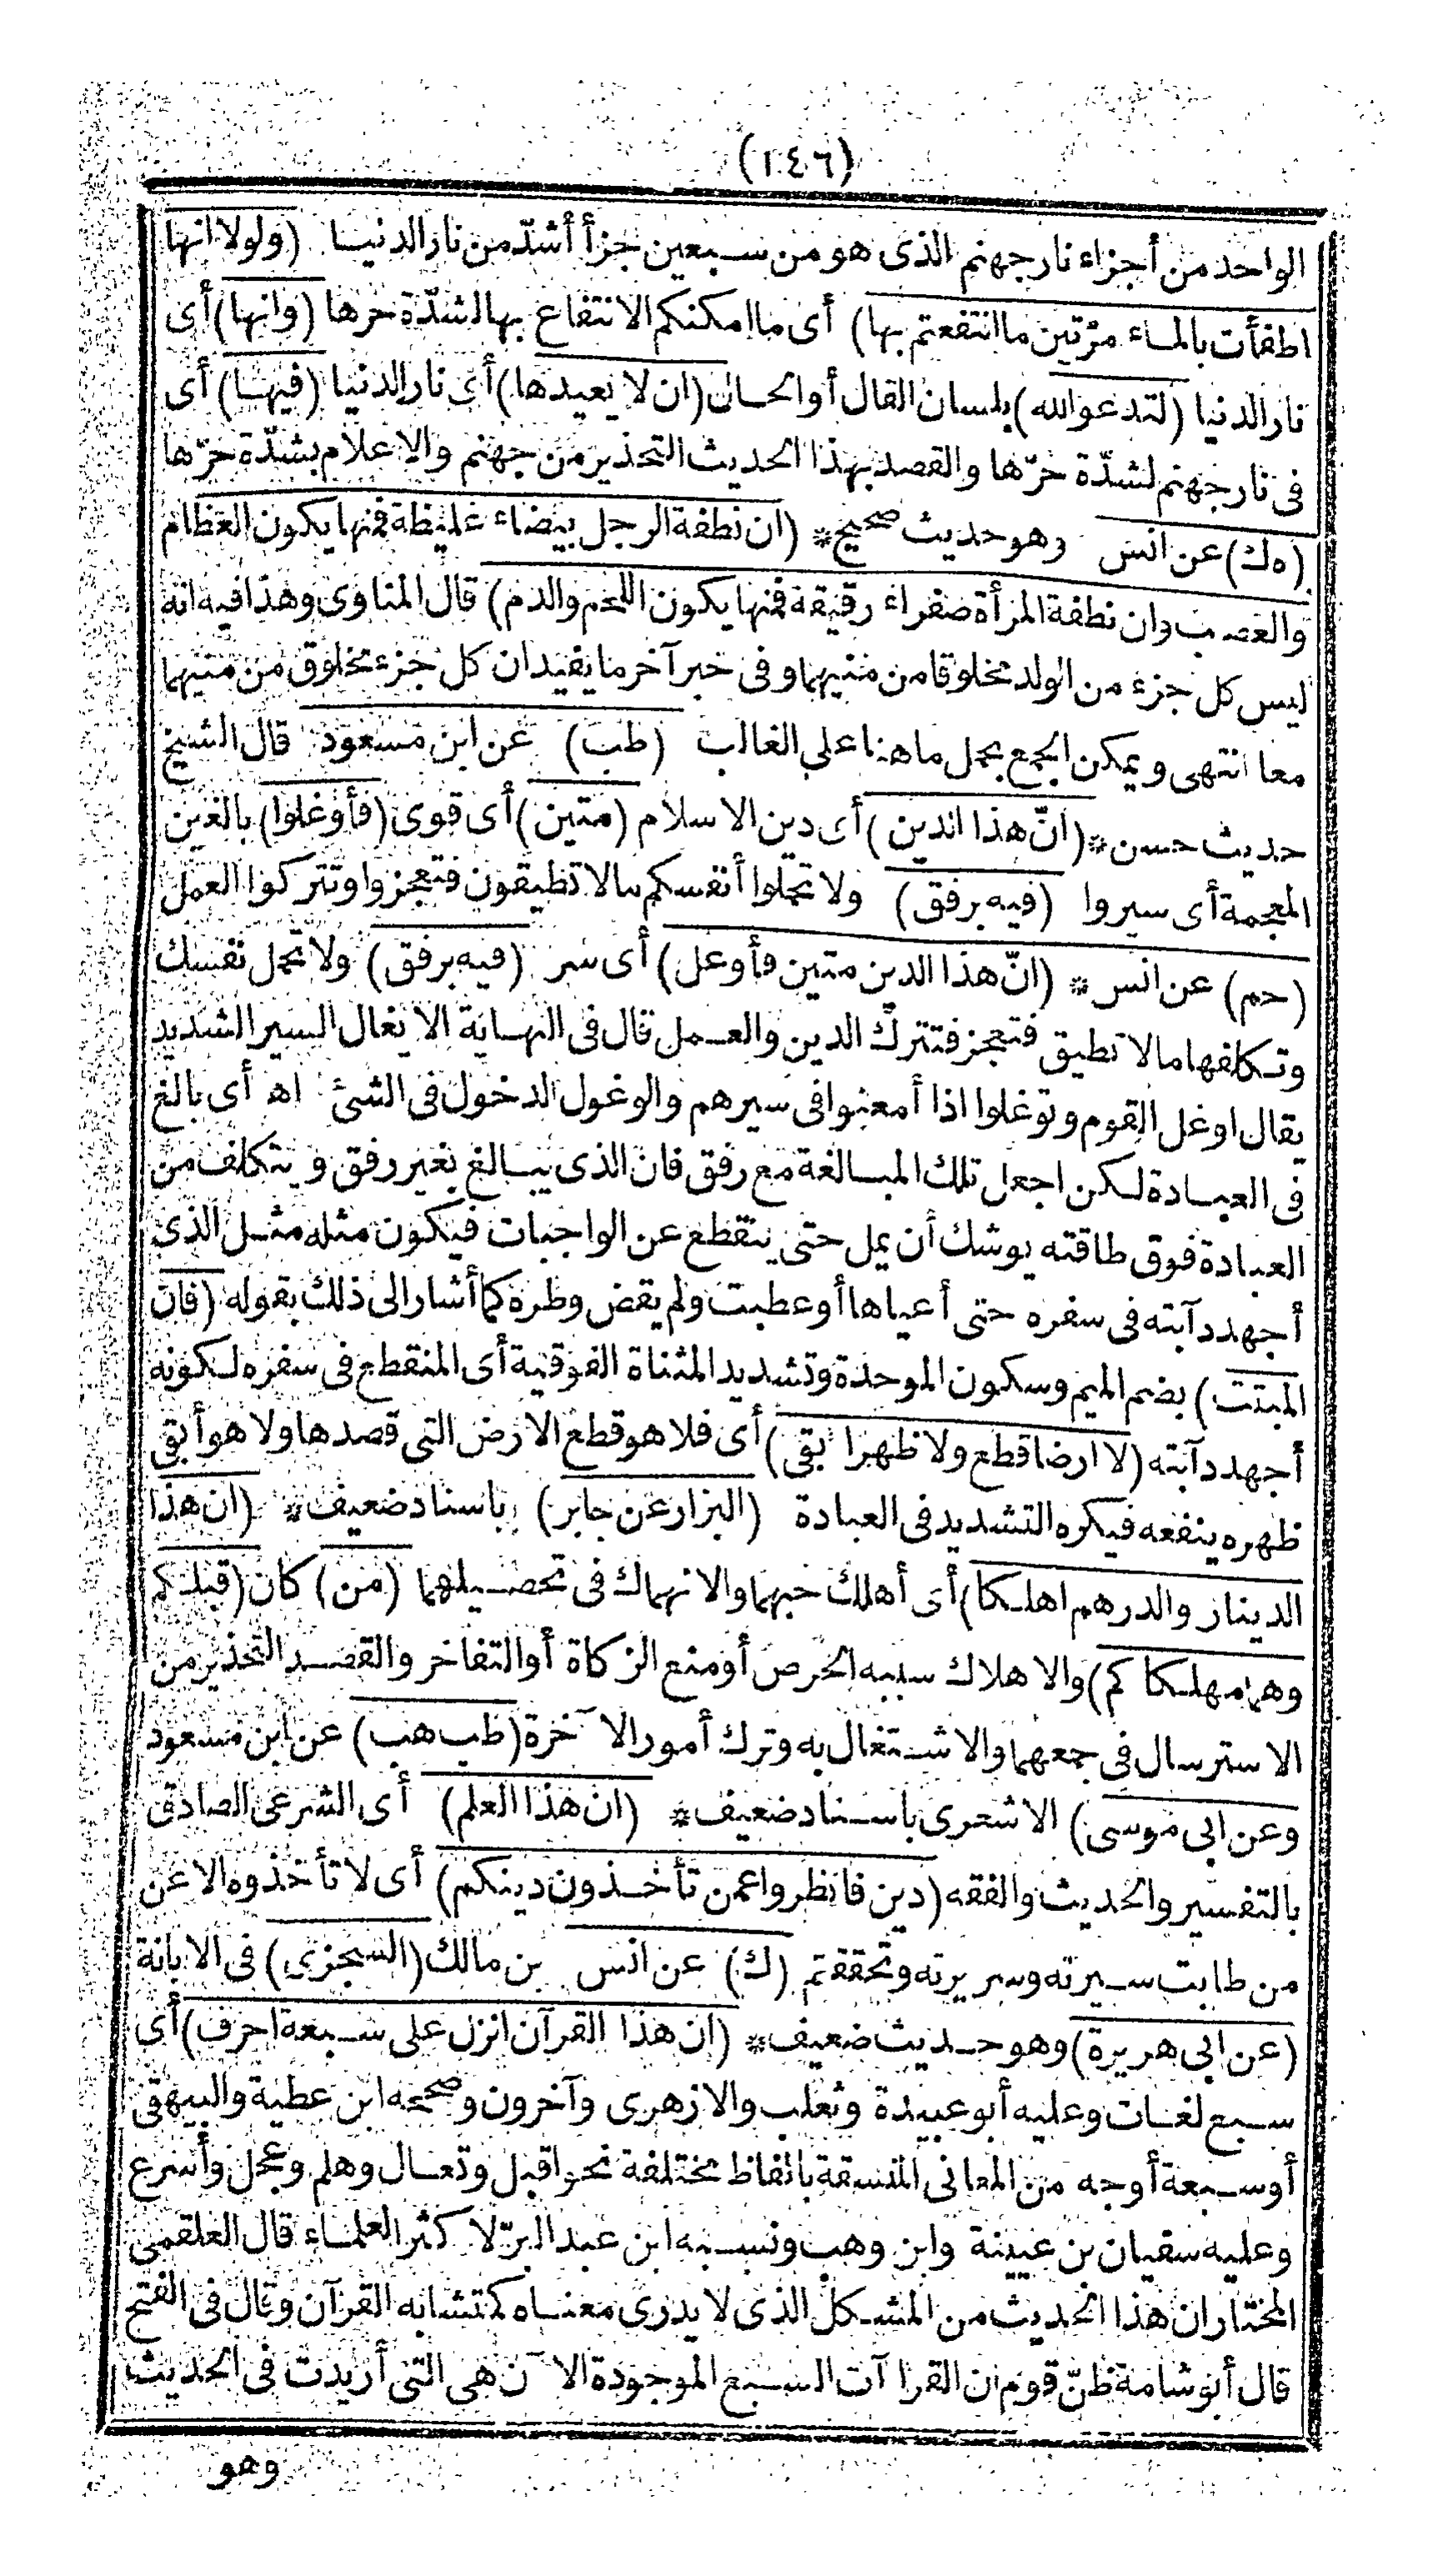 (١٤٦)
الواحد من أجزاء نار جهنم الذى هو من سبعين جزأ أشدّ من نار الدنيا (ولولا انها
اطفأت بالماء مرّتين ما انتفعتم بها) أى ما امكنكم الانتفاع بها لشدّة حرها (وانها) أى
نار الدنيا (لتدعو الله) بلسان القال أو الحال (ان لا يعيدها) أى نار الدنيا (فيها) أى
فى نار جهنم لشدّة حرّها والقصد بهذا الحديث التحذير من جهنم والاعلام بشدّة حرّها
(ه ك) عن انس وهو حديث صحيح * (ان نطفة الرجل بيضاء غليظة فمنها يكون العظام
والعصب وان نطفة المرأة صفراء رقيقة فمنها يكون اللحم والدم) قال المناوى وهذا فيه انه
ليس كل جزء من الولد مخلوقا من منيهما وفى خبر آخر ما يفيد ان كل جزء مخلوق من منيهما
معا انتهى ويمكن الجمع بحمل ما هنا على الغالب (طب) عن ابن مسعود قال الشيخ
حديث حسن * (انّ هذا الدين) أى دين الاسلام (متين) أى قوى (فأوغلوا) بالغين
المعجمة أى سيروا (فيه برفق) ولا تحملوا أنفسكم مالا تطيقون فتعجزوا وتتركوا العمل
(حم) عن انس * (انّ هذا الدين متين فأوغل) أى سر (فيه برفق) ولا تحمل نفسك
وتكلفها مالا تطيق فتعجز فتترك الدين والعمل قال فى النهاية الايغال السير الشديد
يقال اوغل القوم وتوغلوا اذا أمعنوا فى سيرهم والوغول الدخول فى الشئ اه أى بالغ
فى العبادة لكن اجعل تلك المبالغة مع رفق فان الذى يبالغ بغير رفق ويتكلف من
العبادة فوق طاقته يوشك أن يمل حتى ينقطع عن الواجبات فيكون مثله مثل الذى
أجهد دآبته فى سفره حتى أعياها أو عطبت ولم يقض وطره كما أشار الى ذلك بقوله (فان
المبتت) بضم الميم وسكون الموحدة وتشديد المثناة الفوقية أى المنقطع فى سفره لكونه
أجهد دآبته (لا ارضا قطع ولا ظهرا ابقى) أى فلا هو قطع الارض التى قصدها ولا هو أبقى
ظهره ينفعه فيكره التشديد فى العبادة (البزار عن جابر) باسناد ضعيف * (ان هذا
الدينار والدرهم اهلكا) أى أهلك حبهما والانهماك فى تحصيلهما (من) كان (قبلكم
وهما مهلكاكم) والاهلاك سببه الحرص أو منع الزكاة أو التفاخر والقصد التحذير من
الاسترسال فى جمعهما والاشتغال به وترك أمور الآخرة (طب هب) عن ابن مسعود
وعن ابى موسى) الاشعرى باسناد ضعيف * (ان هذا العلم) أى الشرعى الصادق
بالتفسير والحديث والفقه (دين فانظروا عمن تأخذون دينكم) أى لا تأخذوه الا عن
من طابت سيرته وسريرته وتحققتم (ك) عن انس بن مالك (السجزى) فى الابانة
(عن ابى هريرة) وهو حديث ضعيف * (ان هذا القرآن انزل على سبعة احرف) أى
سبع لغات وعليه أبو عبيدة وثعلب والازهرى وآخرون وصححه ابن عطية والبيهقى
أو سبعة أوجه من المعانى المتسقة بالفاظ مختلفة نحو اقبل وتعال وهلم وعجل وأسرع
وعليه سفيان بن عيينة وابن وهب ونسبه ابن عبد البرّ لاكثر العلماء قال العلقمى
المختار ان هذا الحديث من المشكل الذى لا يدرى معناه كمتشابه القرآن وقال فى الفتح
قال أبو شامة ظنّ قوم ان القراآت السبع الموجودة الآن هى التى أريدت فى الحديث
وهو